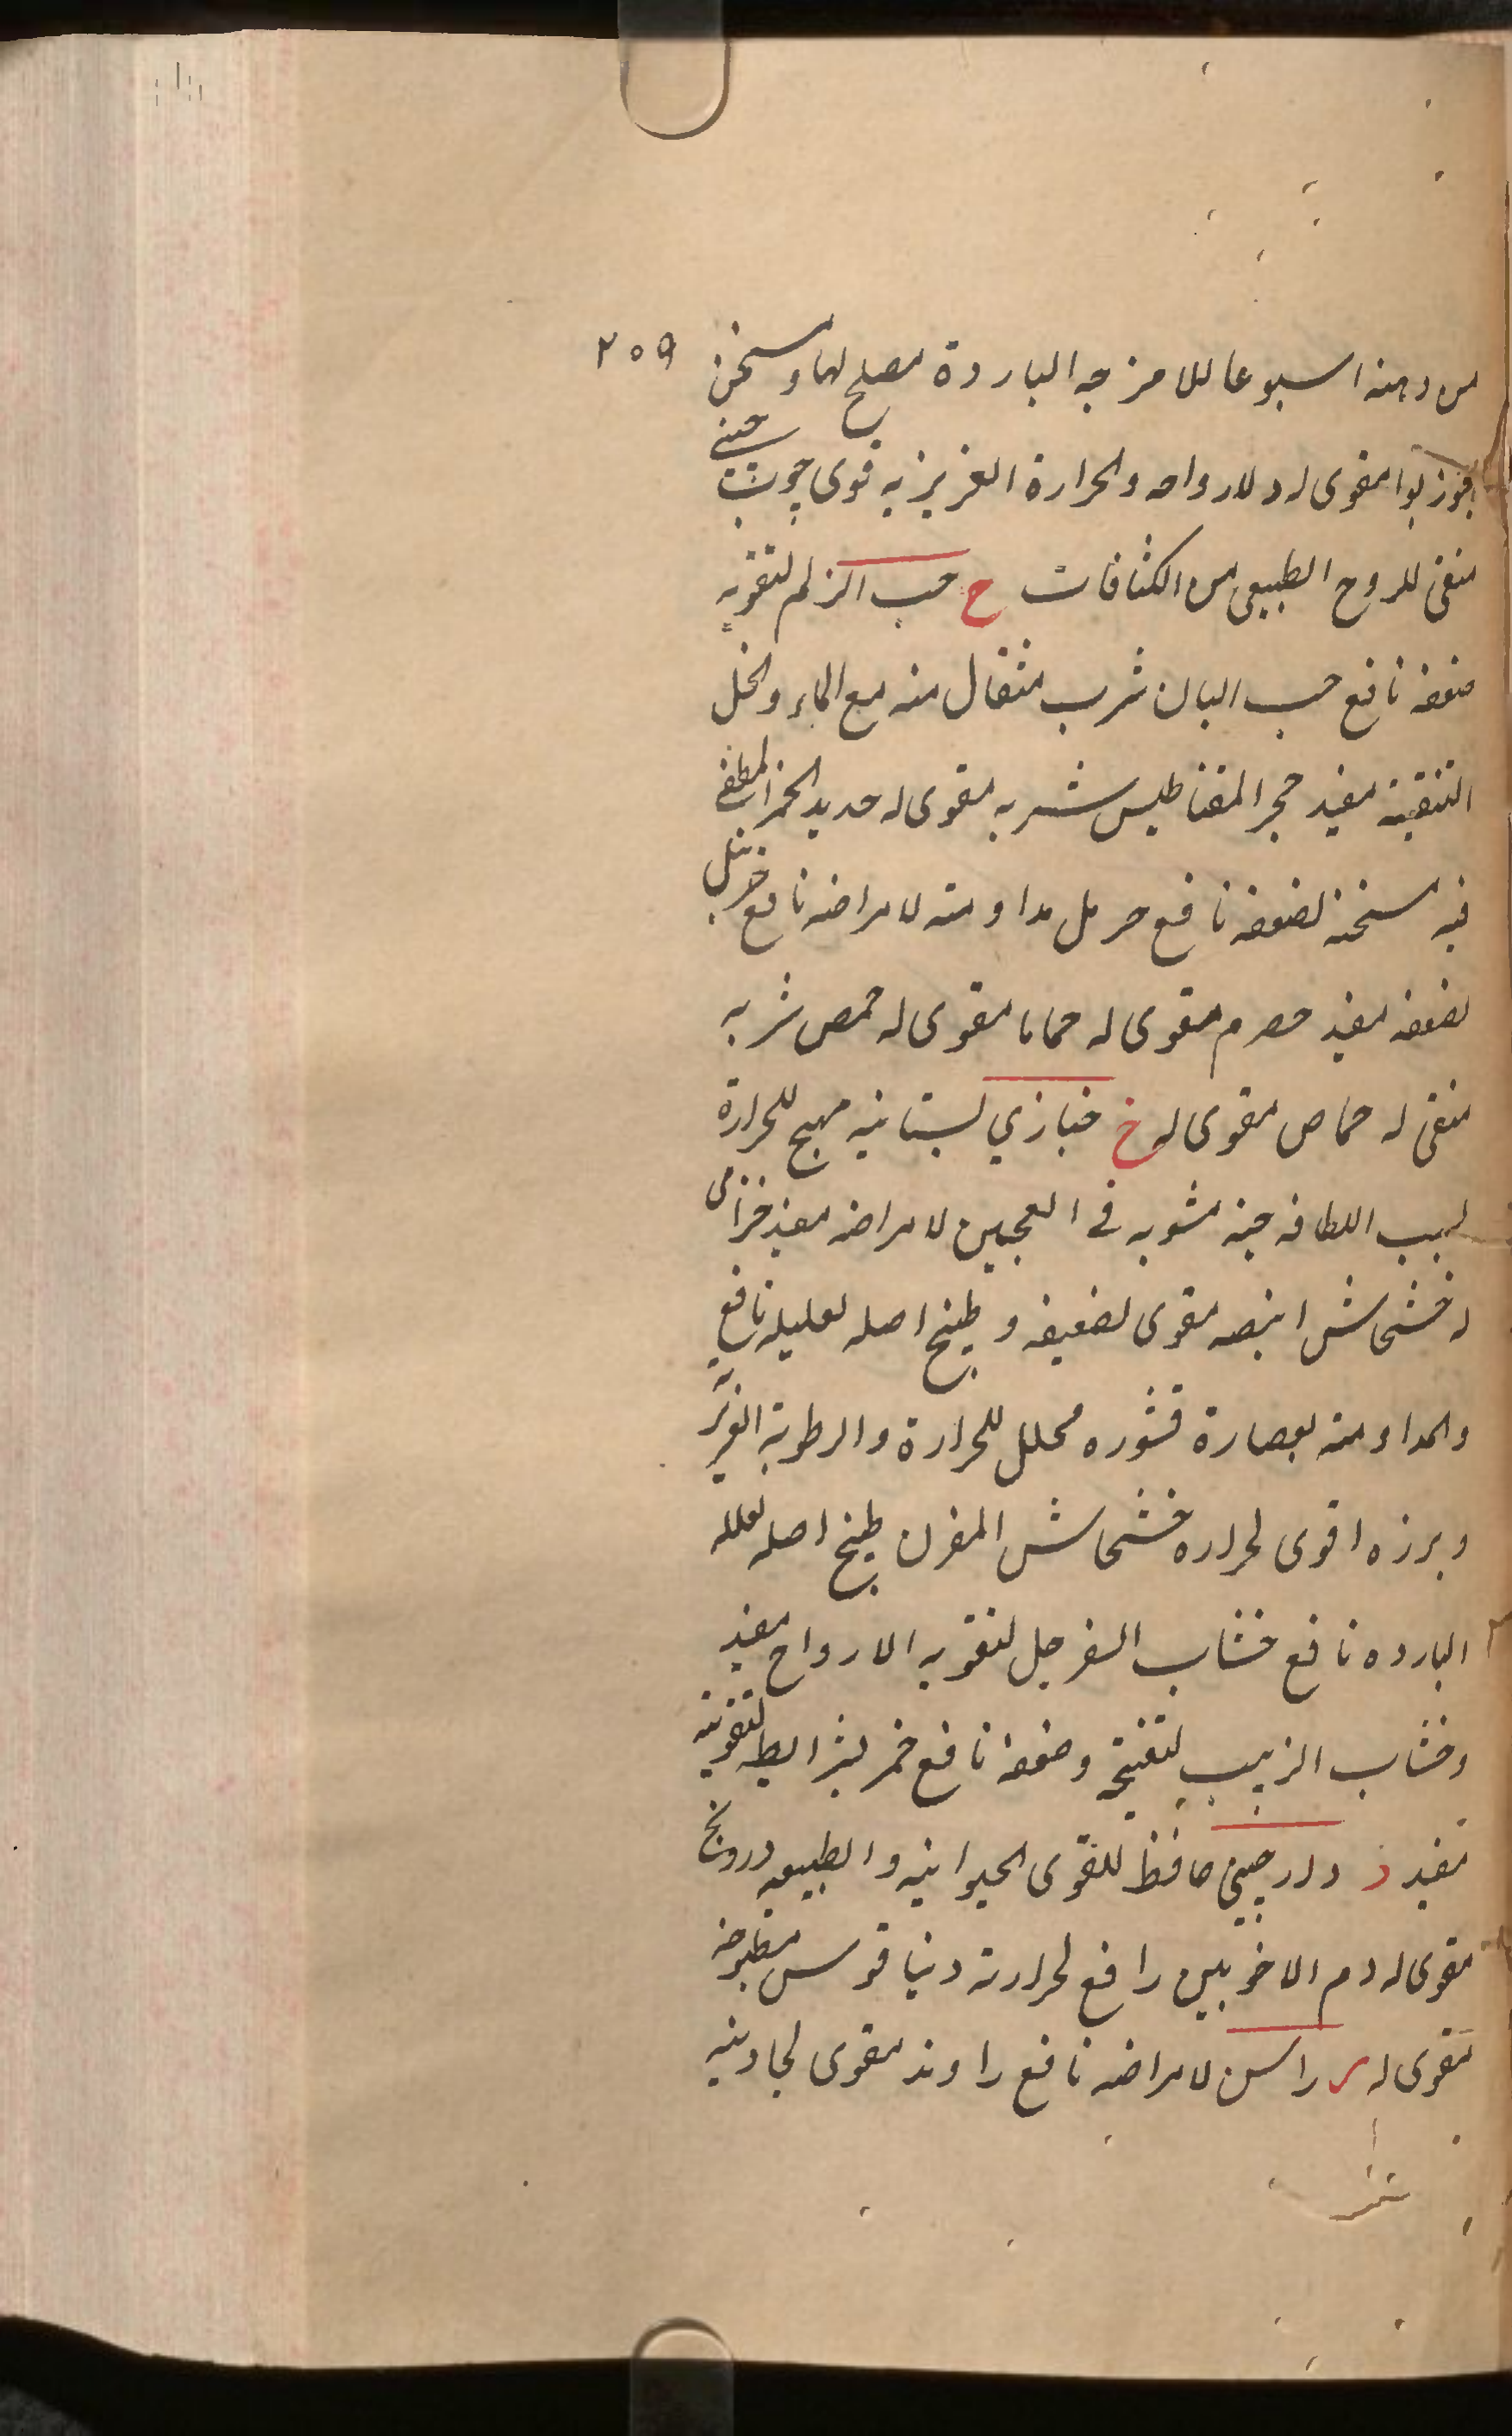 ٢٥٩
من دهنه اسبوعا للامزجه الباردة مصلح لها ومسخن
جوز بوا مقوى له وللارواحه والحرارة الغريزيه قوى جوب چينى
منقى للروح الطبيعى من الكثافات ح حب الزلم لتقويه
ضعفه نافع حب البان شرب مثقال منه مع الماء والخل
لتنقيته مفيد حجر المقناطيس شربه مقوى له حديد الخمر المطفى
فيه مسخنه لضعفه نافع حرمل مداومته لامراضه نافع
لضعفه مفيد حصرم مقوى له حماما مقوى له حمص شربه
منقى له حماض مقوى له خ خبازي بستانيه مهيج للحرارة
لسبب اللطافه خبه مشويه فى العجين لامراضه مفيد خزامى
له خشخاش ابيضه مقوى لضعيفه وطبيخ اصله لعليله نافع
والمداومته بعصارة قشوره محلل للحرارة والرطوبة الغريزية
وبرزه اقوى لحراره خشخاش المقرن طبيخ اصله لعلله
البارده نافع خشاب السفرجل لتقويه الارواح مفيد
وخشاب الزبيب لتفتيح وضعفه نافع خمر بشرايطه لتقويته
مفيد د دارچينى حافظ للقوى الحيوانيه والطبيعيه درونج
مقوى له دم الاخوين رافع لحرارته دنياقوس مطبوخه
مقوى له ر راسن لامراضه نافع راوند مقوى لجاذبيه